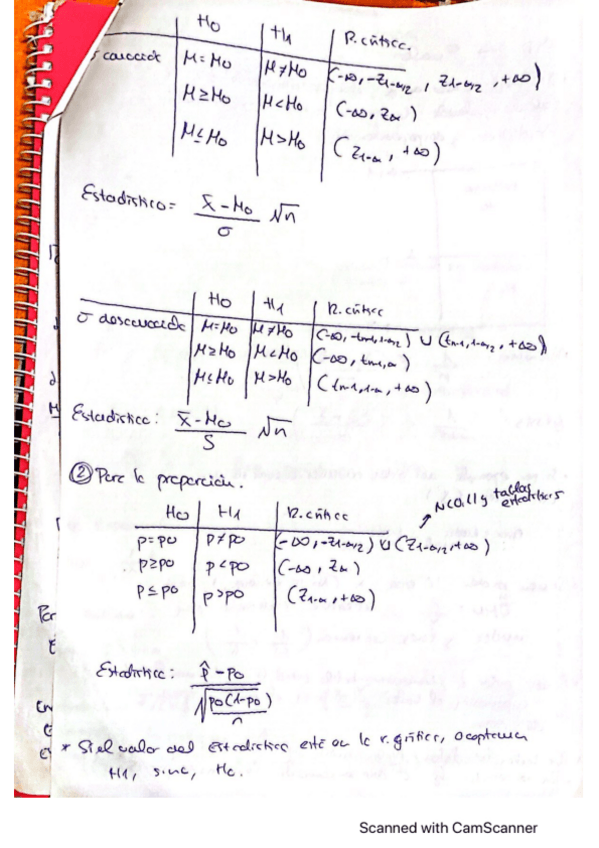 H0 H1 R. crítica.
σ conocida μ=μ0 μ≠μ0 (-∞, -z1-α/2, z1-α/2, +∞)
μ≥μ0 μ<μ0 (-∞, zα)
μ≤μ0 μ>μ0 (z1-α, +∞)
Estadístico = x̄ - μ0 / σ √n
H0 H1 R. crítica
σ desconocida μ=μ0 μ≠μ0 (-∞, -tn-1,1-α/2) ∪ (tn-1,1-α/2, +∞)
μ≥μ0 μ<μ0 (-∞, tn-1,α)
μ≤μ0 μ>μ0 (tn-1,1-α, +∞)
Estadístico: x̄ - μ0 / S √n
② Para la proporción.
N(0,1) y tablas
estadísticas
H0 H1 R. crítica
p=p0 p≠p0 (-∞, -z1-α/2) ∪ (z1-α/2, +∞)
p≥p0 p<p0 (-∞, zα)
p≤p0 p>p0 (z1-α, +∞)
Estadístico: p̂ - p0 / √p0(1-p0) / n
* Si el valor del estadístico está en la r. crítica, aceptamos
H1, sino, H0.
Scanned with CamScanner